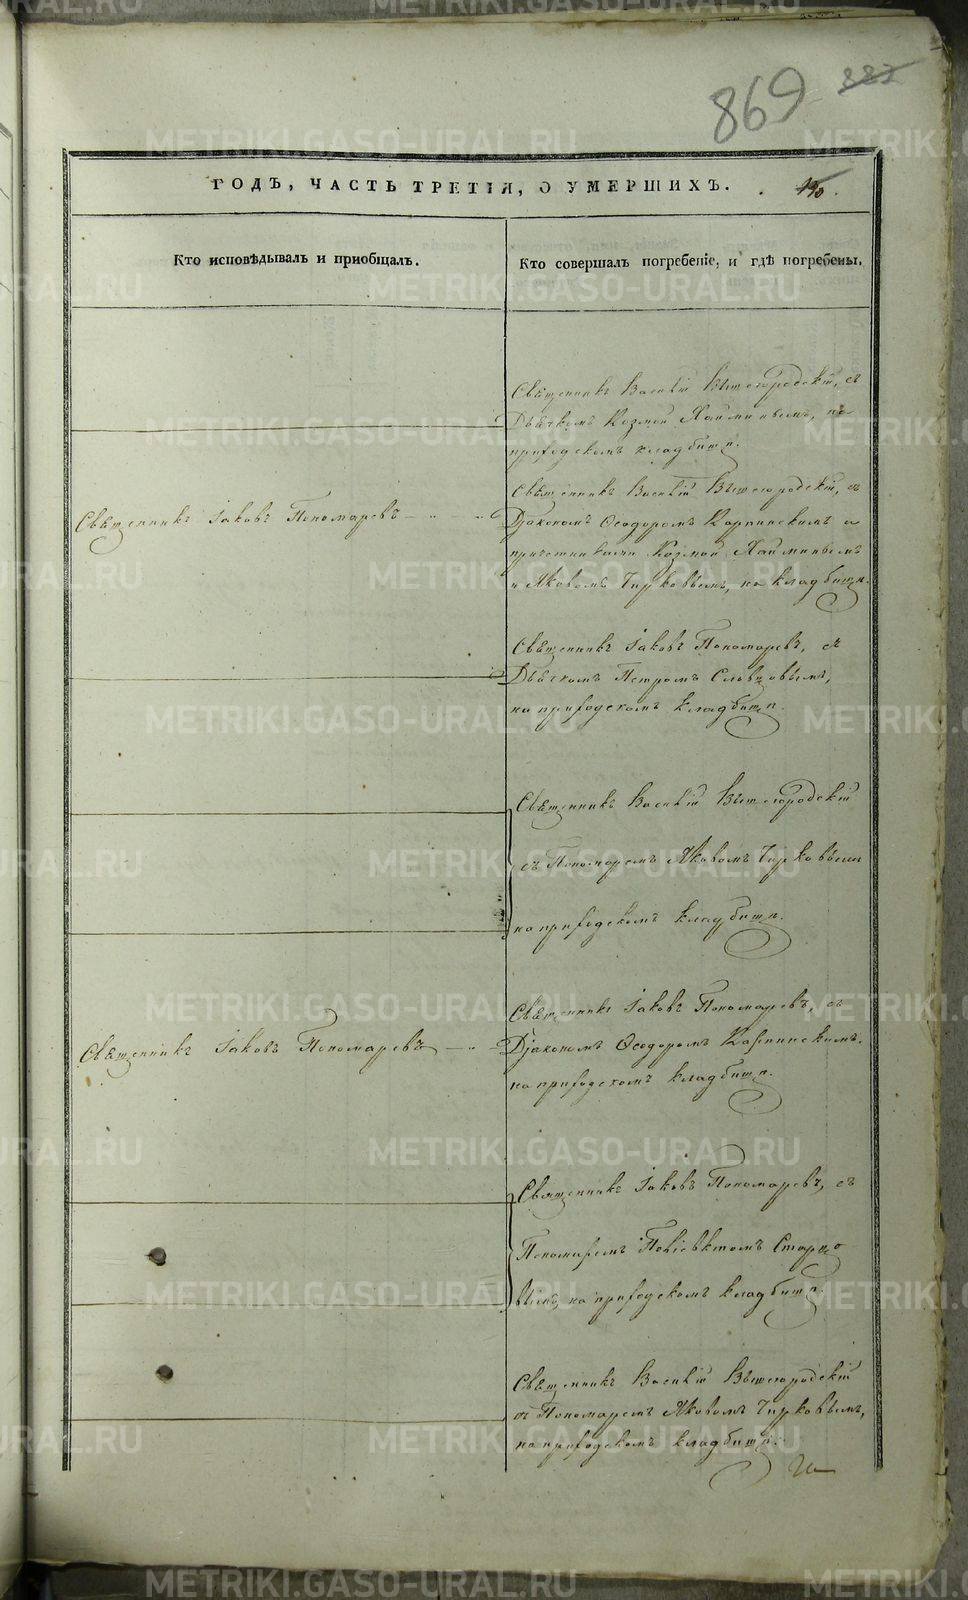 869
ГОДЪ, ЧАСТЬ ТРЕТІЯ, О УМЕРШИХЪ.
Кто исповѣдывалъ и приобщалъ.
Кто совершалъ погребеніе, и гдѣ погребены.
Священникъ Василій Вышегородскій, съ
Дьячкомъ Козмой Хайминымъ, на
приходскомъ кладбищѣ.
Священникъ Іаковъ Пономаревъ
Священникъ Василій Вышегородскій, съ
Діакономъ Ѳеодоромъ Карпинскимъ и
причетниками Козмой Хайминымъ
и Яковомъ Чирковымъ, на кладбищѣ.
Священникъ Іаковъ Пономаревъ, съ
Дьячкомъ Петромъ Словцовымъ,
на приходскомъ кладбищѣ.
Священникъ Василій Вышегородскій
съ Пономаремъ Яковомъ Чирковымъ
на приходскомъ кладбищѣ.
Священникъ Іаковъ Пономаревъ
Священникъ Іаковъ Пономаревъ, съ
Діакономъ Ѳеодоромъ Карпинскимъ,
на приходскомъ кладбищѣ.
Священникъ Іаковъ Пономаревъ, съ
Пономаремъ Поліевктомъ Старцо
вымъ, на приходскомъ кладбищѣ.
Священникъ Василій Вышегородскій
съ Пономаремъ Яковомъ Чирковымъ,
на приходскомъ кладбищѣ.
METRIKI.GASO-URAL.RU